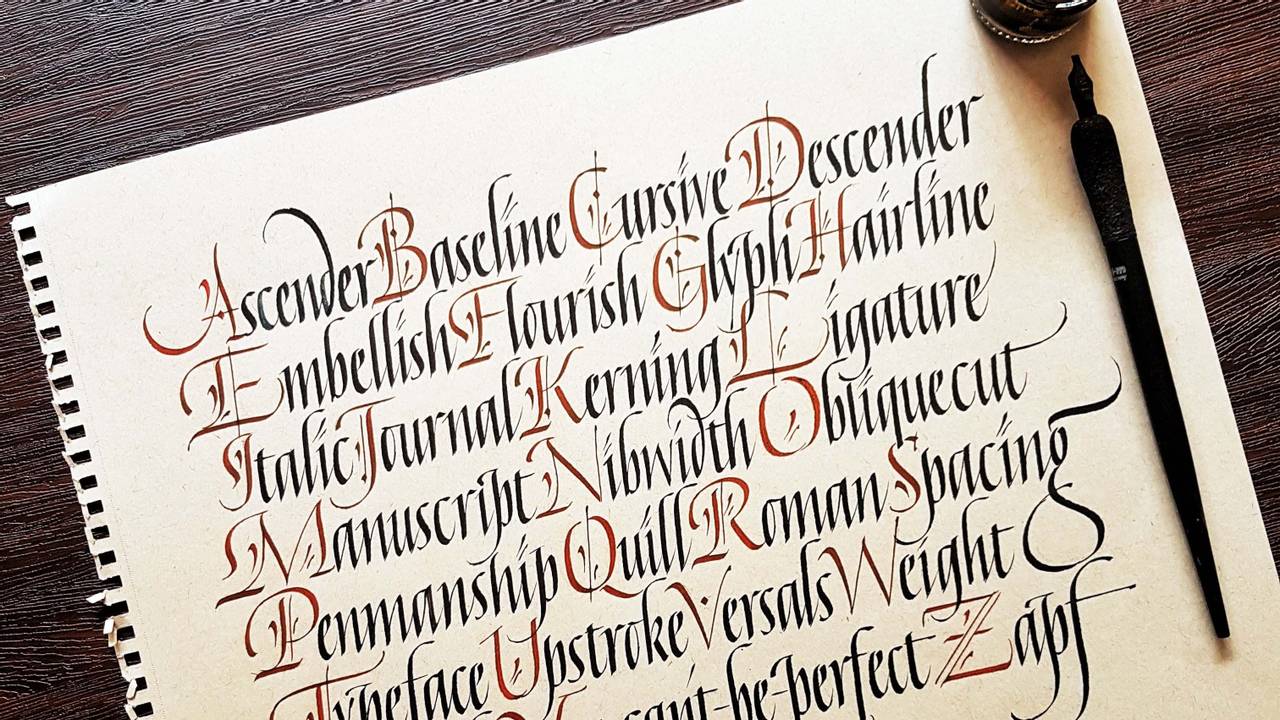 Ascender Baseline Cursive Descender
Embellish Flourish Glyph Hairline
Italic Journal Kerning Ligature
Manuscript Nibwidth Obliquecut
Penmanship Quill Roman Spacing
Typeface Upstroke Versals Weight &
cant-be-perfect Zapf